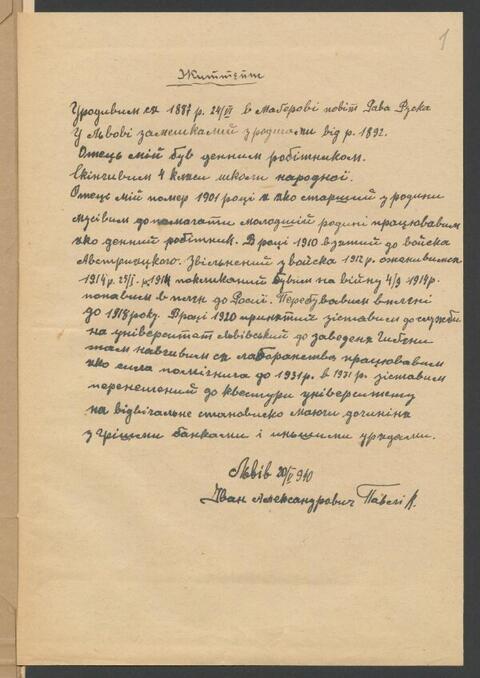 1
Життєпис
Уродивимся 1887 р. 24/VI в Маґерові повіт Рава Руска
У Львові замешкалий з родичами від р. 1892.
Отець мій був денним робітником.
Скінчивим 4 кляси школи народної.
Отець мій помер 1901 році яко старший з родини
мусівим до помагати молодшій родині працювавим
яко денний робітник. В році 1910 взятий до войска
Австрицкого. Звільнений з войска 1912 р. оженивимся
1914 р. покликаний бувим на війну 4/9 1914 р.
попавим в плін до Росії. Перебувавим в пліні
до 1918 року. В році 1920 принятий зіставим до служби
на університет Львівський до заведеня
там навчивим ся лаборанства працювавим
яко сила помічнича до 1931 р. в 1931 р. зіставим
перенешений до квестури університету
на відвічальне становиско маючи до чиніня
з грішми банками і иньшими урядами.
Львів 20/II 940
Іван Александрович